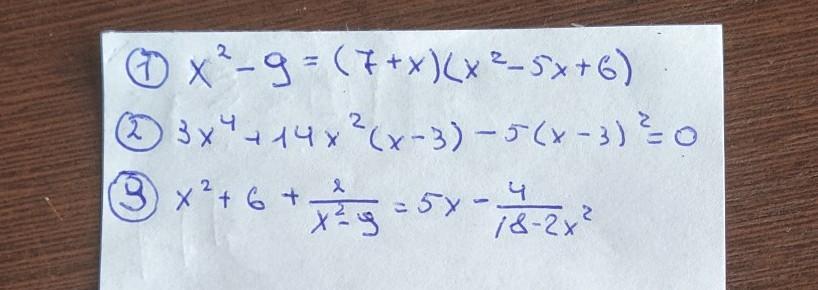 ① x² - 9 = (7+x)(x² - 5x + 6)
② 3x⁴ + 14x²(x-3) - 5(x-3)² = 0
③ x² + 6 + 2/(x²-9) = 5x - 4/(18-2x²)